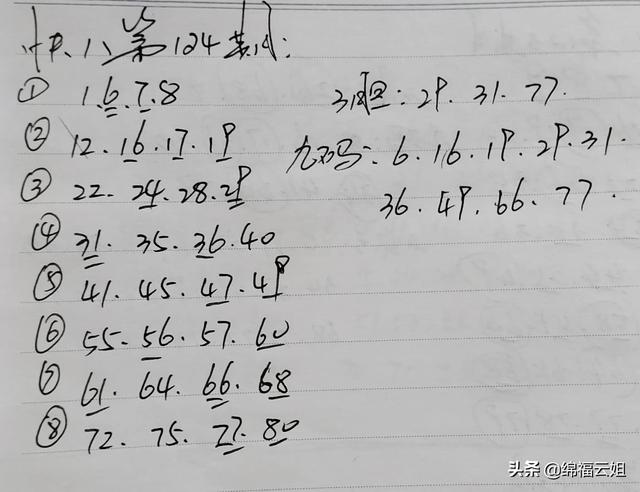 快八第124期:
① 1.6.7.8
② 12.16.17.19
③ 22.24.28.29
④ 31.35.36.40
⑤ 41.45.47.49
⑥ 55.56.57.60
⑦ 61.64.66.68
⑧ 72.75.77.80
3胆:29.31.77.
九码:6.16.19.29.31.
36.49.66.77.
头条 @绵福云姐